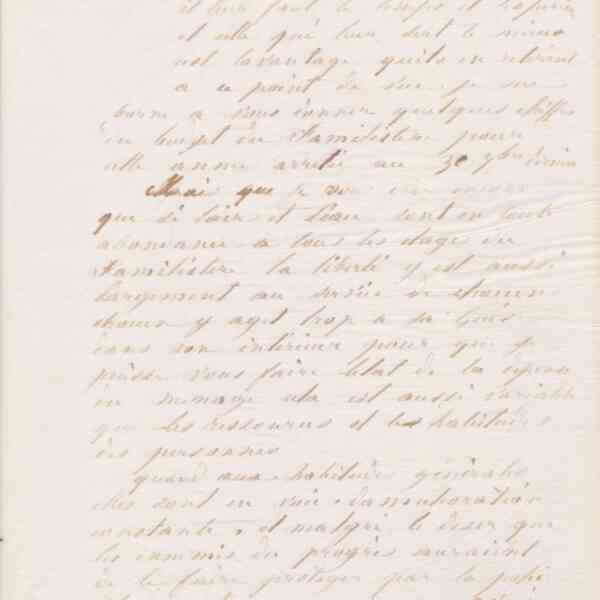 et leur faut le temps et
et elle qui leur dert le mieux
est lavantage quils en retirent
a ce point de vue je me
borne a vous donner quelques chiffres
du buget du Familistere pour
cette annee arretee au 30 7bre dernier
Mais que je vous dise encore
que si lair et leau sont en toute
abondance a tous les etages du
Familistere la liberté y est aussi
largement au service de chacun
chacun y agit trop a sa guise
dans son intérieur pour que je
puisse vous faire létat de la dépense
du menage cela est aussi variable
que les ressources et les habitudes
des personnes
quand aux habitudes générales
elles sont en voie damelioration
constante, et malgré le desir que
les ennemis du progrès auraient
de le faire proteger par la